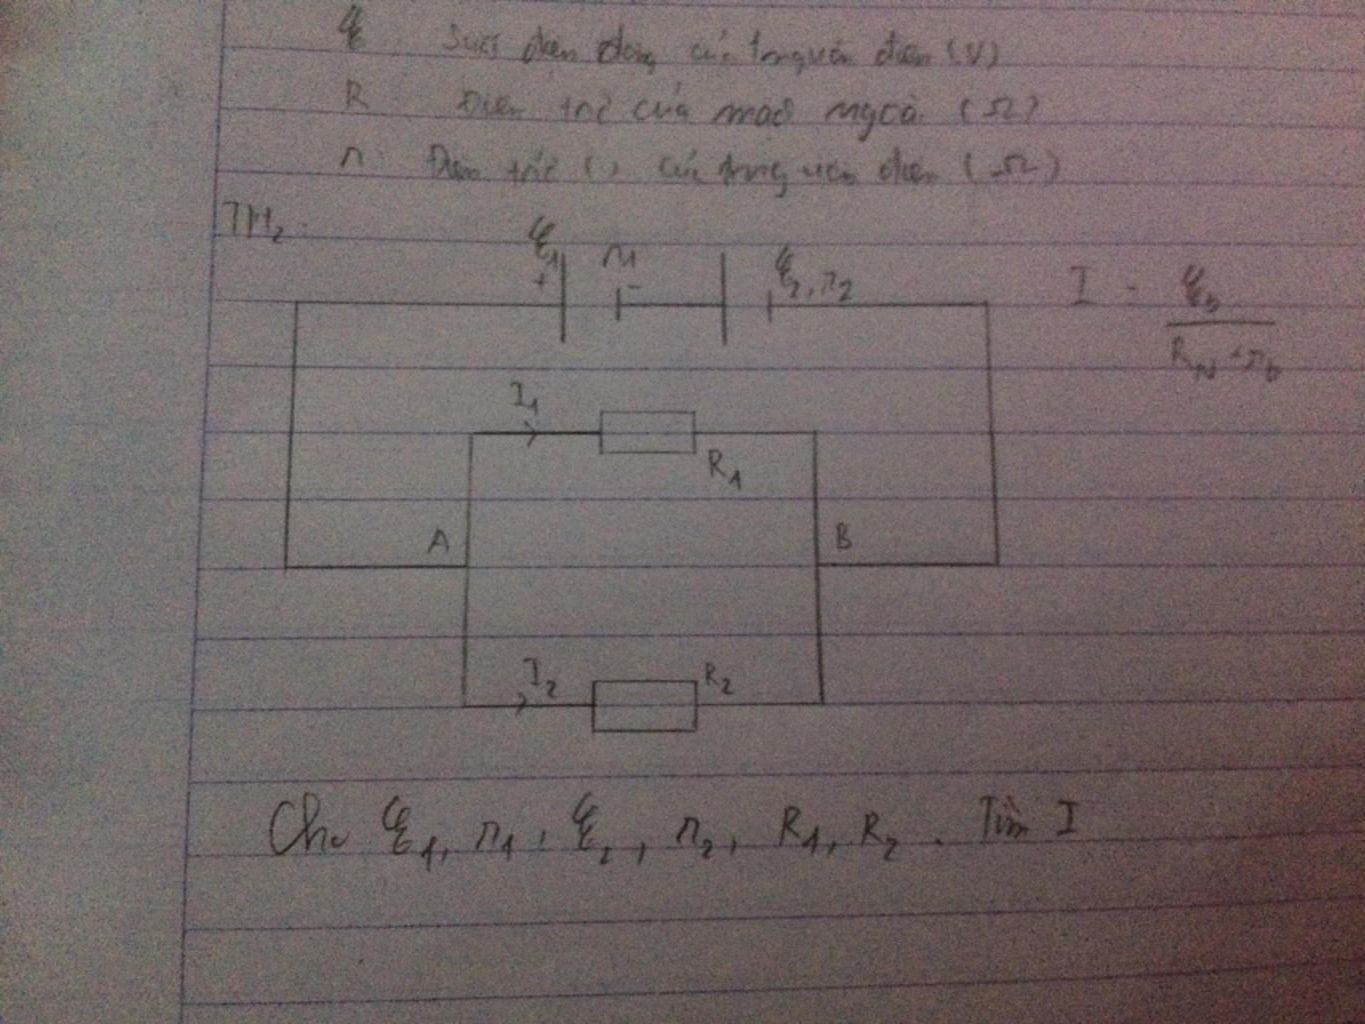 ξ Suất điện động của nguồn điện (V)
R Điện trở của mạch ngoài (Ω)
r: Điện trở () của nguồn điện (Ω)
TH2:
ξ1 r1
+ -
ξ2, r2
I = ξb / (RN + rb)
I1
R1
A
B
I2
R2
Cho ξ1, r1, ξ2, r2, R1, R2. Tìm I